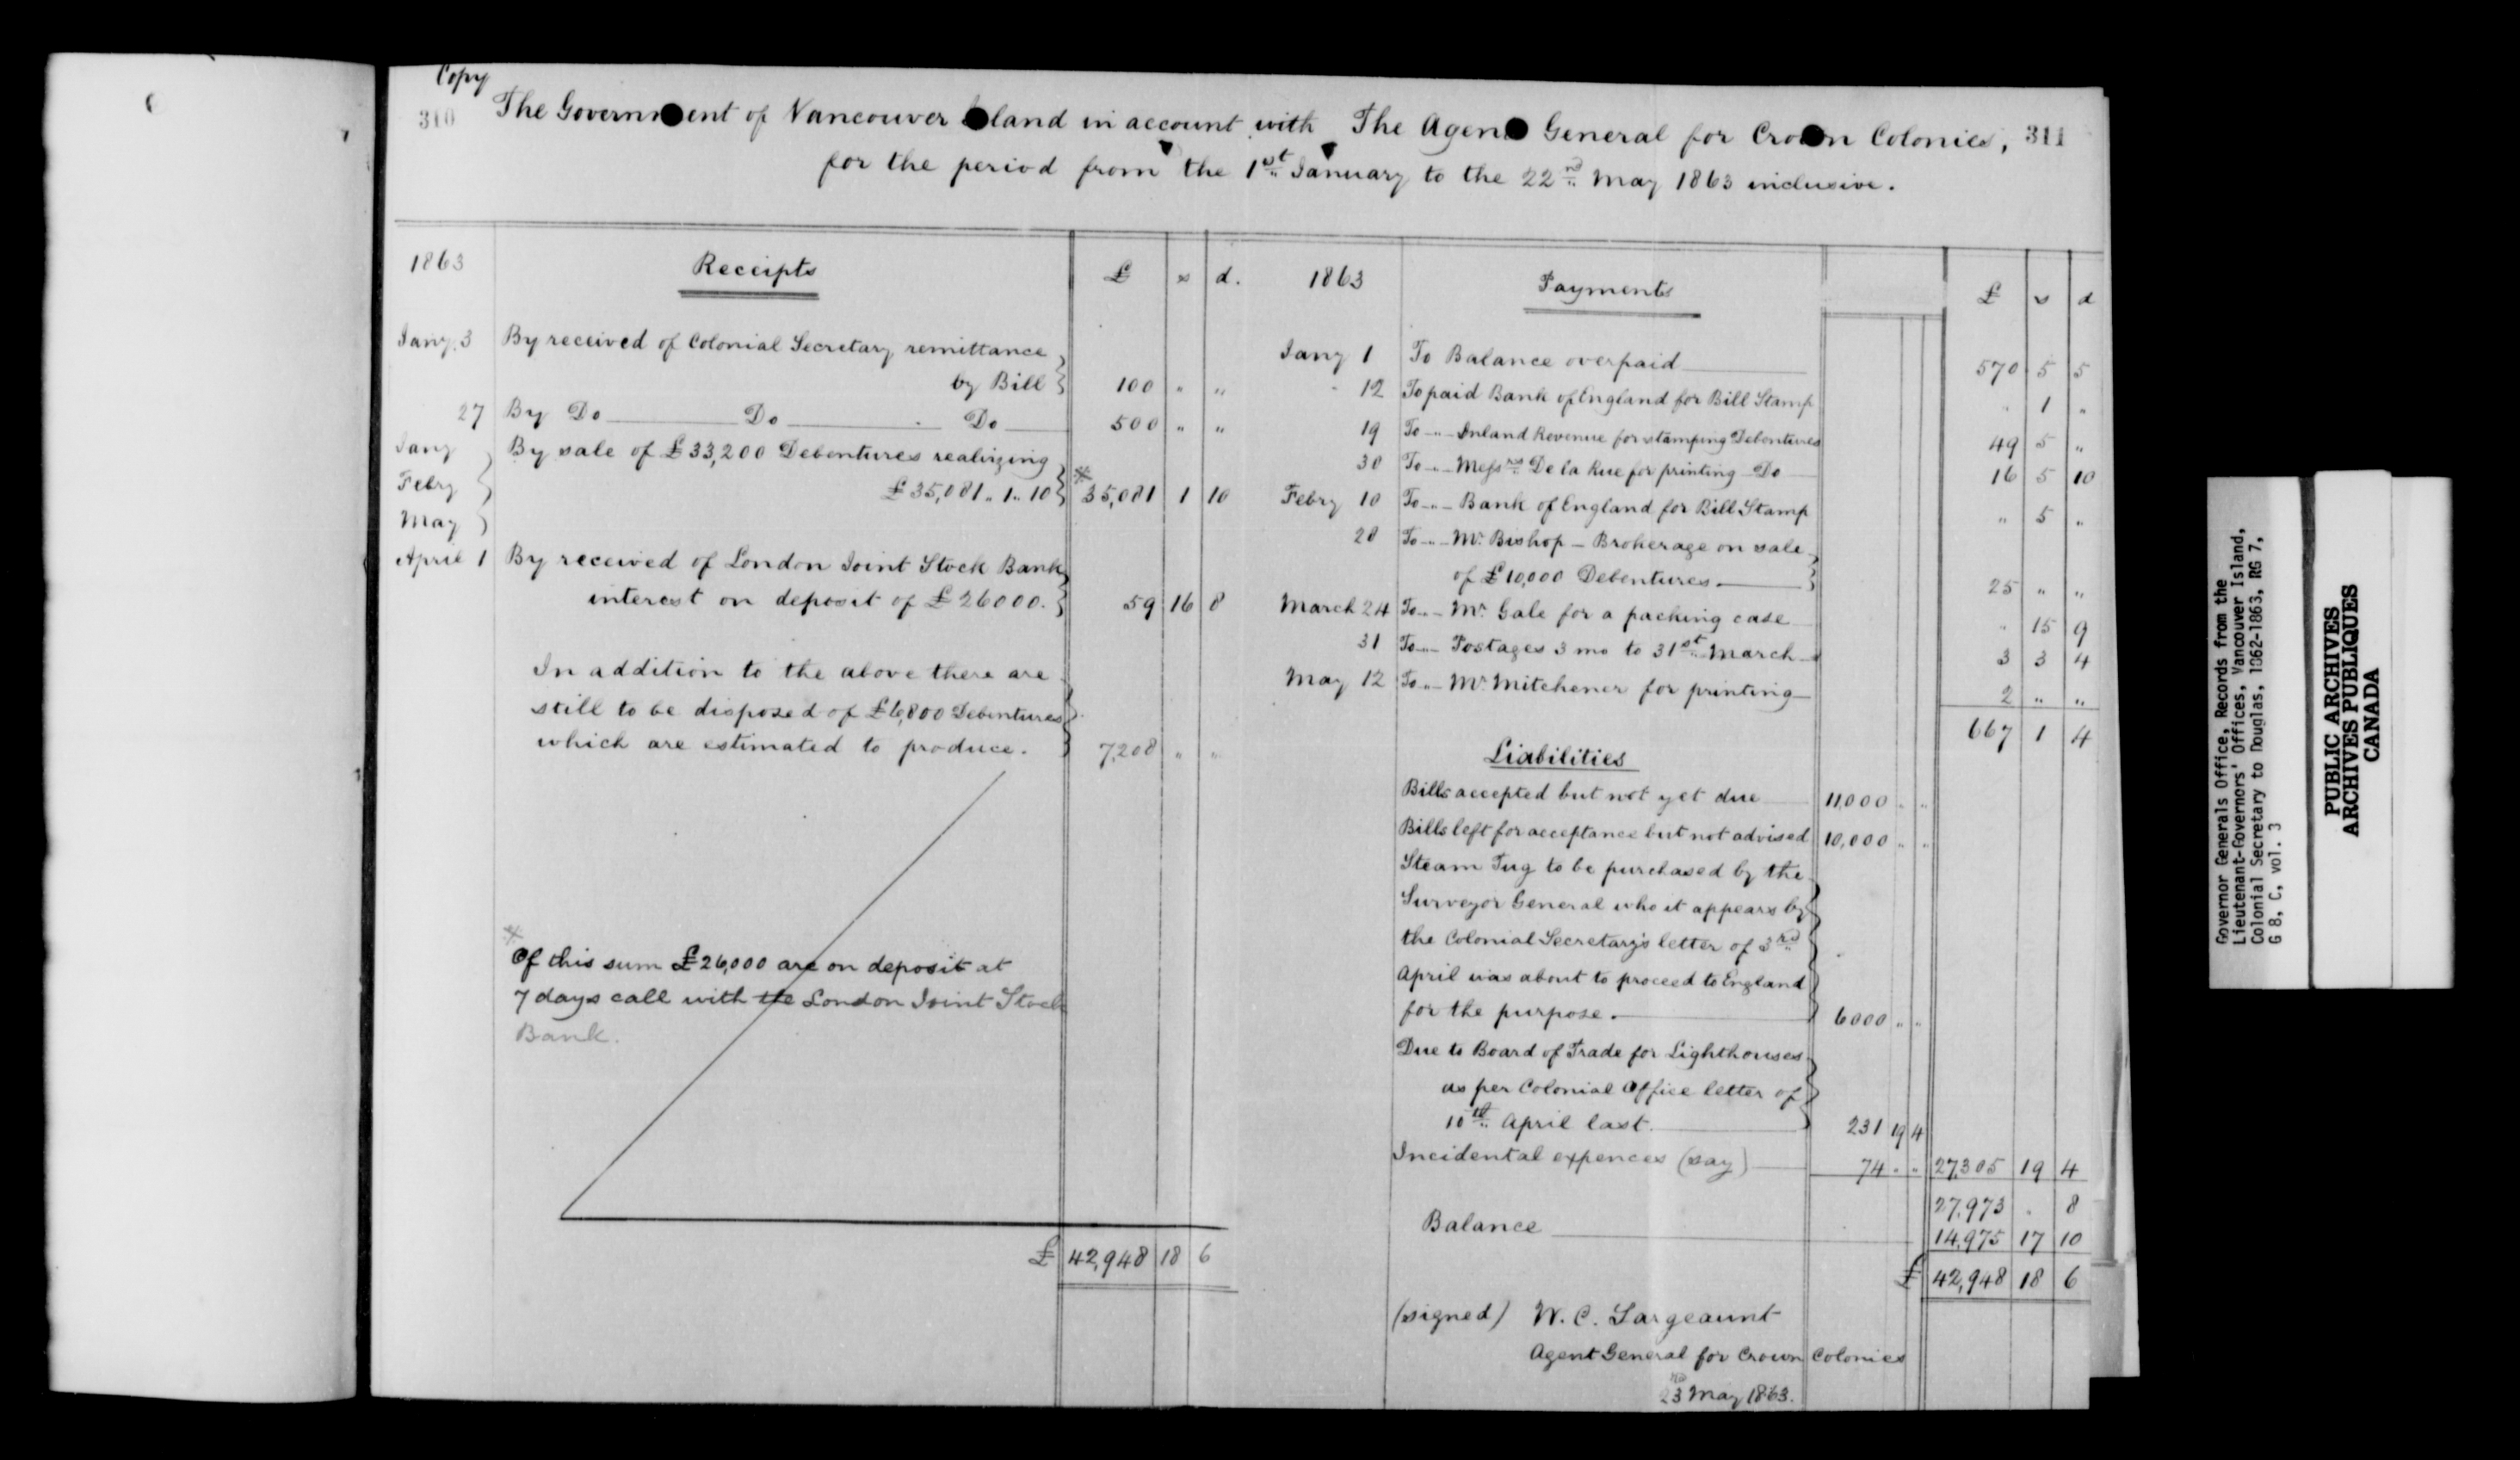 Copy
310
The Government of Vancouver Island in account with The Agent General for Crown Colonies, 311
for the period from the 1st January to the 22nd May 1863 inclusive.
1863 Receipts £ s d.
Jany. 3 By received of Colonial Secretary remittance
by Bill 100 " "
27 By Do Do Do 500 " "
Jany By sale of £33,200 Debentures realizing
Febry £35,081 " 1 " 10 * 35,081 1 10
May
April 1 By received of London Joint Stock Bank
interest on deposit of £26000. 59 16 8
In addition to the above there are
still to be disposed of £6,800 Debentures
which are estimated to produce. 7,208 " "
*
Of this sum £26,000 are on deposit at
7 days call with the London Joint Stock
Bank.
£ 42,948 18 6
1863 Payments £ s d
Jany 1 To Balance overpaid 570 5 5
" 12 To paid Bank of England for Bill Stamp " 1 "
19 To " Inland Revenue for stamping Debentures 49 5 "
30 To " Messrs De la Rue for printing Do 16 5 10
Febry 10 To " Bank of England for Bill Stamp " 5 "
28 To " Mr. Bishop – Brokerage on sale
of £10,000 Debentures. 25 " "
March 24 To " Mr. Gale for a packing case " 15 9
31 To " Postages 3 mo to 31st March 3 3 4
May 12 To " Mr. Mitchener for printing 2 " "
667 1 4
Liabilities
Bills accepted but not yet due 11,000 " "
Bills left for acceptance but not advised 10,000 " "
Steam Tug to be purchased by the
Surveyor General who it appears by
the Colonial Secretary's letter of 3rd
April was about to proceed to England
for the purpose. 6000 " "
Due to Board of Trade for Lighthouses
as per Colonial Office letter of
10th April last. 231 19 4
Incidental expences (say) 74 " " 27,305 19 4
27,973 " 8
Balance 14,975 17 10
£ 42,948 18 6
(signed) W. C. Sargeaunt
Agent General for Crown Colonies
23rd May 1863.
Governor Generals Office, Records from the
Lieutenant-Governors' Offices, Vancouver Island,
Colonial Secretary to Douglas, 1862-1863, RG 7,
G 8, C, vol. 3
PUBLIC ARCHIVES
ARCHIVES PUBLIQUES
CANADA